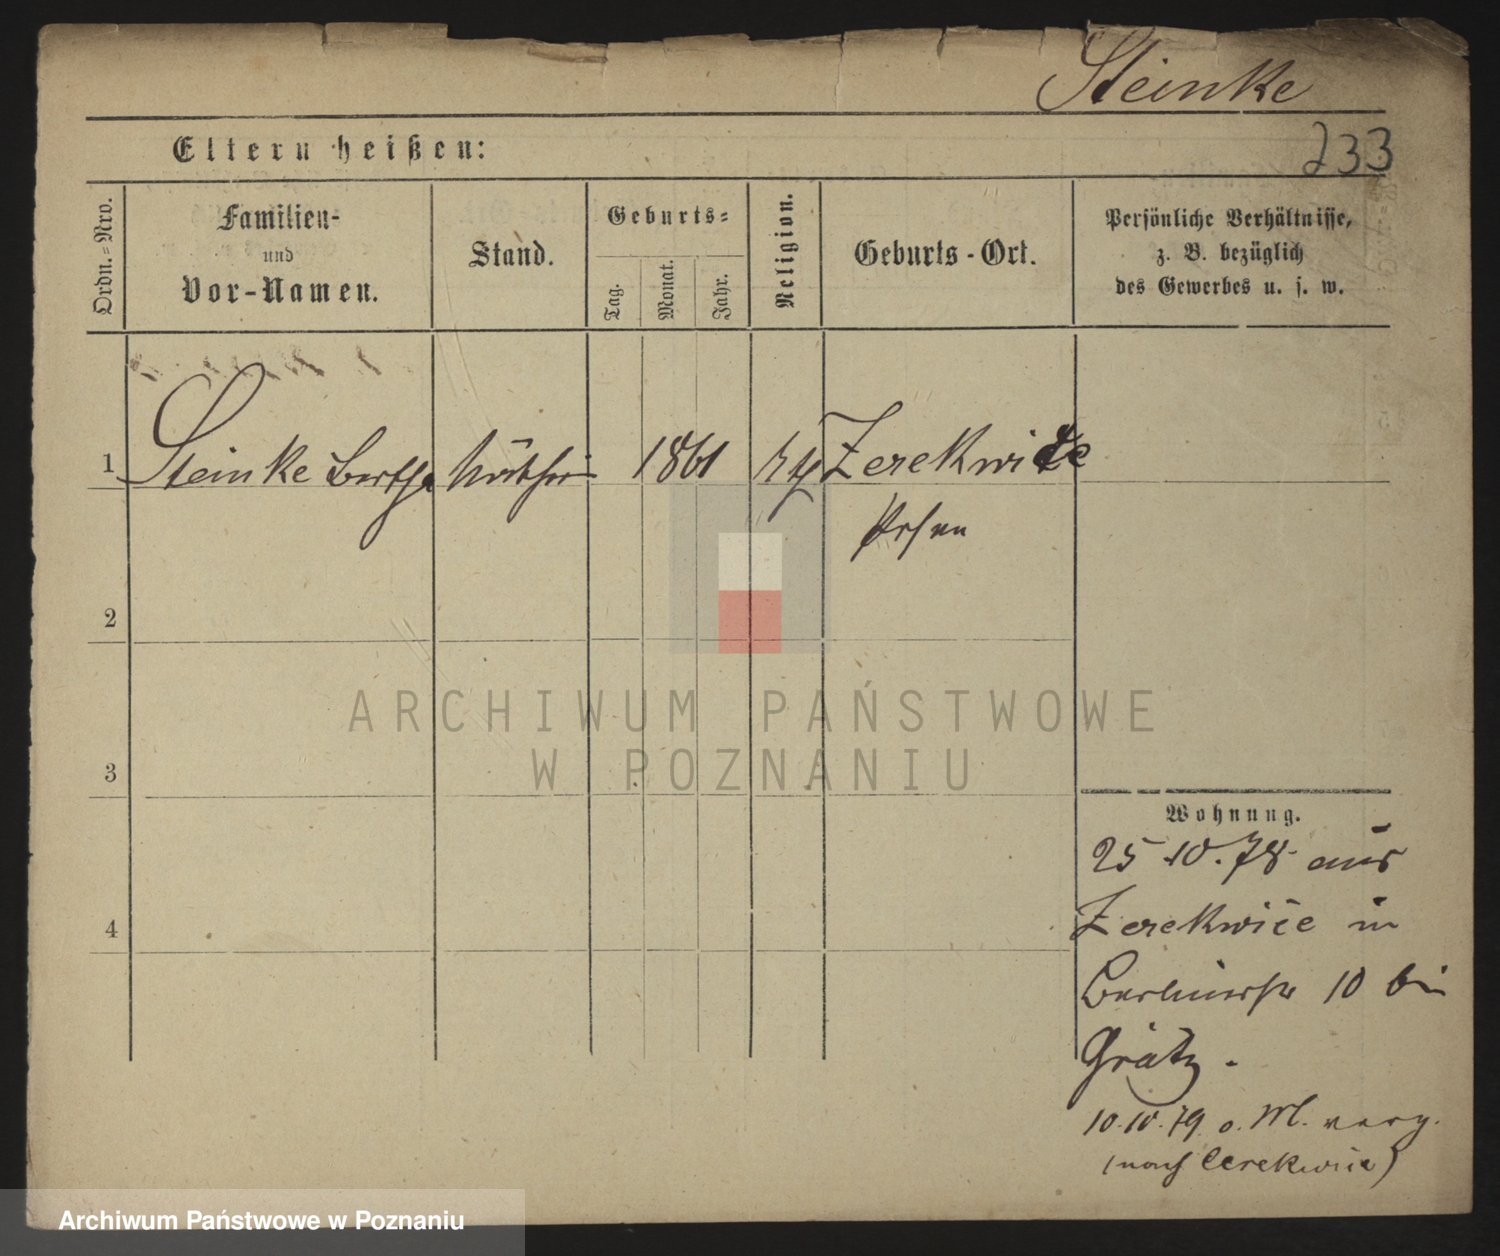 Steinke
233
Eltern heißen:
Ordn.-Nro.
Familien-
und
Vor-Namen.
Stand.
Geburts-
Tag.
Monat.
Jahr.
Religion.
Geburts-Ort.
Persönliche Verhältnisse,
z. B. bezüglich
des Gewerbes u. s. w.
1 Steinke Bertha 1861 Zerekwice
Posen
2
3
4
Wohnung.
25 10. 78 aus
Zerekwice in
Berlinerstr 10 bei
Grätz.
10. 10. 79 o. M. verz.
(nach Cerekwice)
ARCHIWUM PAŃSTWOWE
W POZNANIU
Archiwum Państwowe w Poznaniu